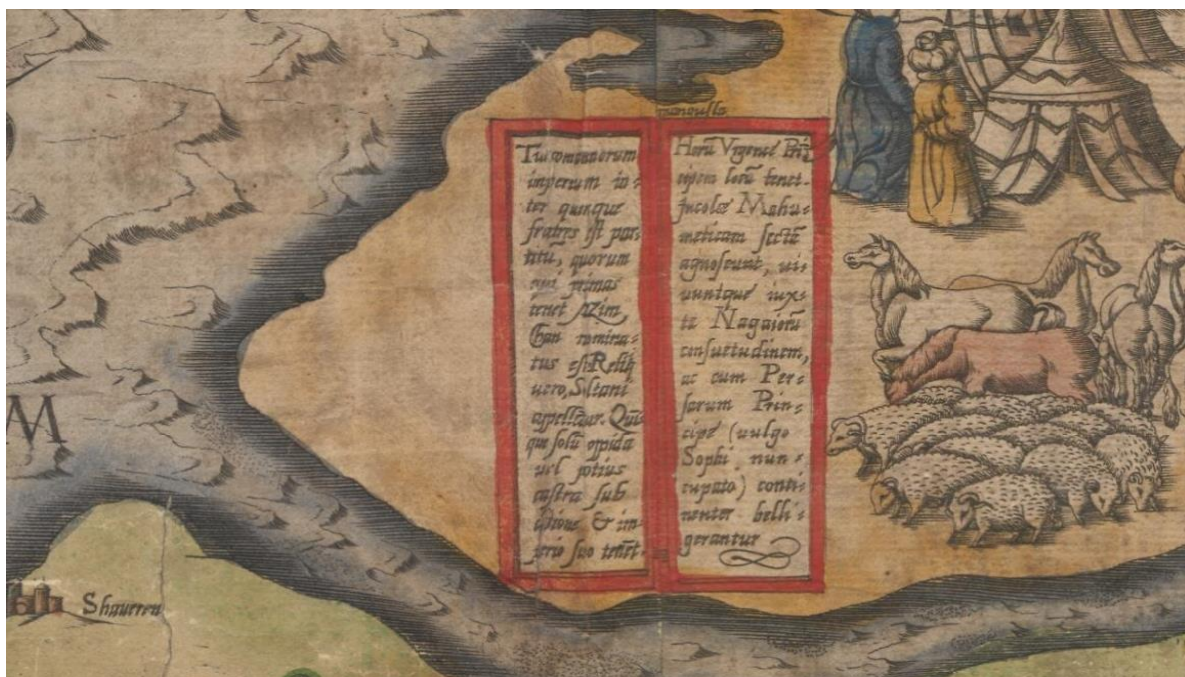 manguslа
Turcomannorum
imperium in=
ter quinque
fratres est par=
titu, quorum
qui primas
tenet Azim,
Chan nomina=
tus est. Reliq
uero, Sultani
appellātur. Quī
que solū oppida
uel potius
castra sub
ditione & im=
perio suo tenēt.
Horū Vrgence Prī
cipem locū tenet.
Incolæ Mahu=
meticam sectā
agnoscunt, ui=
uuntque iux=
ta Nagaiorū
consuetudinem,
ac cum Per=
sarum Prin=
cipe (uulgo
Sophi nun=
cupato) conti=
nenter belli=
gerantur
M